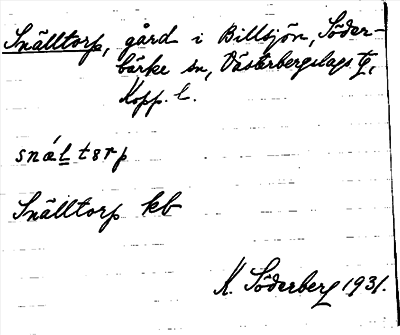 Snälltorp, gård i Billsjön, Söder-
bärke sn, Västerbergslags tg,
Kopp. l.
snál torp
Snälltorp kb
K. Söderberg 1931.